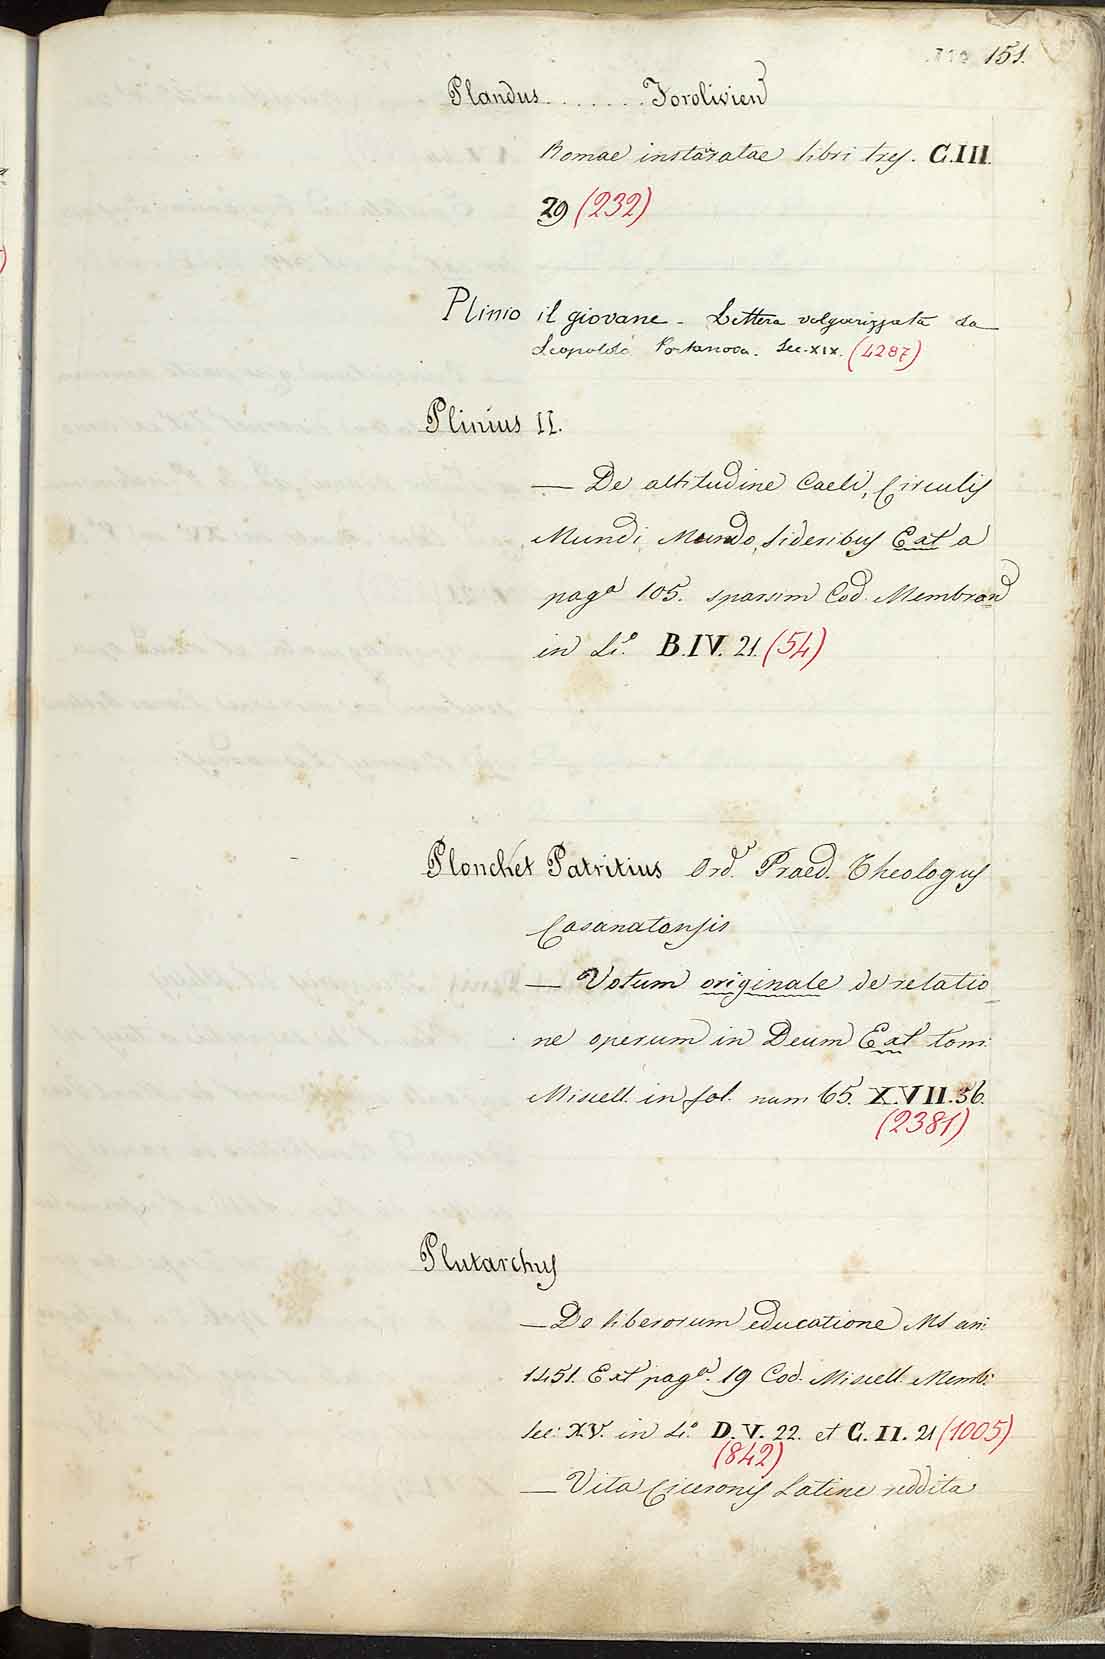 151.
Plandus . . . . . . . Forolivien
Romae instaratae libri tres. G.III.
29 (232)
Plinio il giovane - Lettera volgarizzata da
Leopoldo Portanova. Sec. XIX. (4287)
Plinius II.
— De altitudine Caeli, Circulis
Mundi, Mundo, sideribus Ext a
pag.ª 105. sparsim Cod. Membran
in 4.º B.IV. 21. (54)
Plonchet Patritius Ord. Praed. Theologus
Casanatensis
— Votum originale de relatio
ne operum in Deum Ext tom:
Miscell. in fol. num 65. X.VII.36.
(2381)
Plutarchus
— De liberorum educatione Ms an:
1451. Ext pag.ª 19 Cod. Miscell. Memb:
sec: XV. in 4.º D.V. 22. et G.II. 21 (1005)
(842)
— Vita Ciceronis Latine reddita